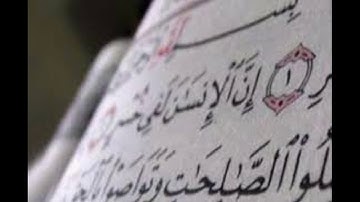 بِسْـ
ـرِ ١ إِنَّ ٱلْإِنسَٰنَ لَفِى خُسْرٍ
ـلُوا۟ ٱلصَّٰلِحَٰتِ وَتَوَاصَوْا۟ بِٱلْحَـ